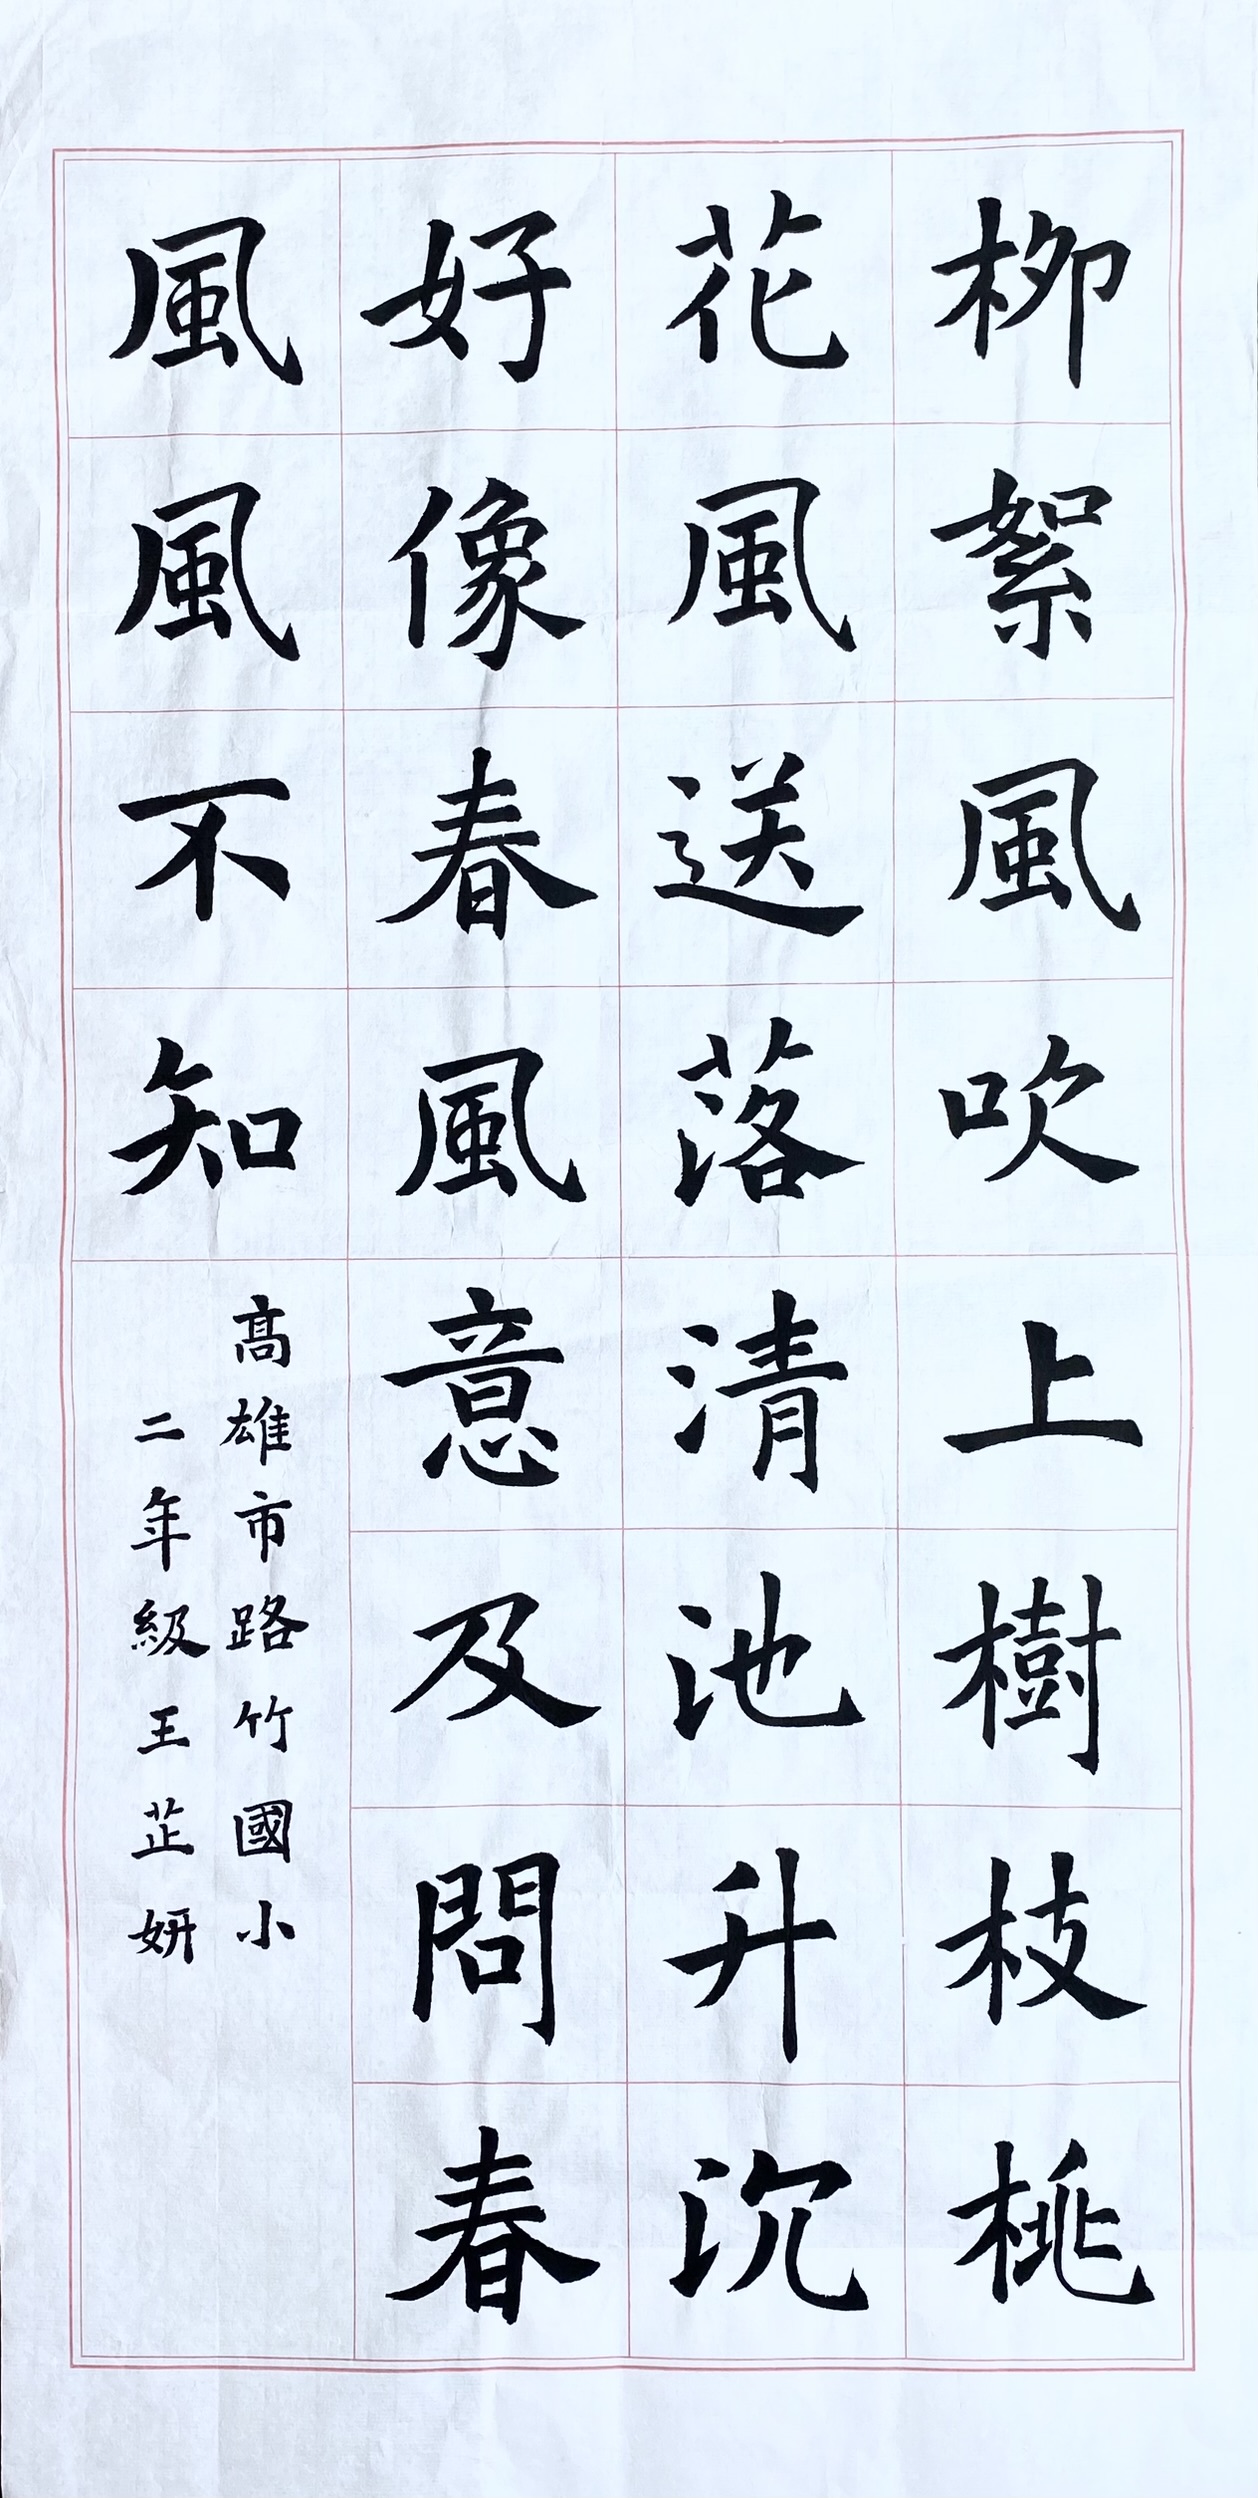 柳絮風吹上樹枝桃
花風送落清池升沉
好像春風意及問春
風風不知
高雄市路竹國小
二年級王芷妍